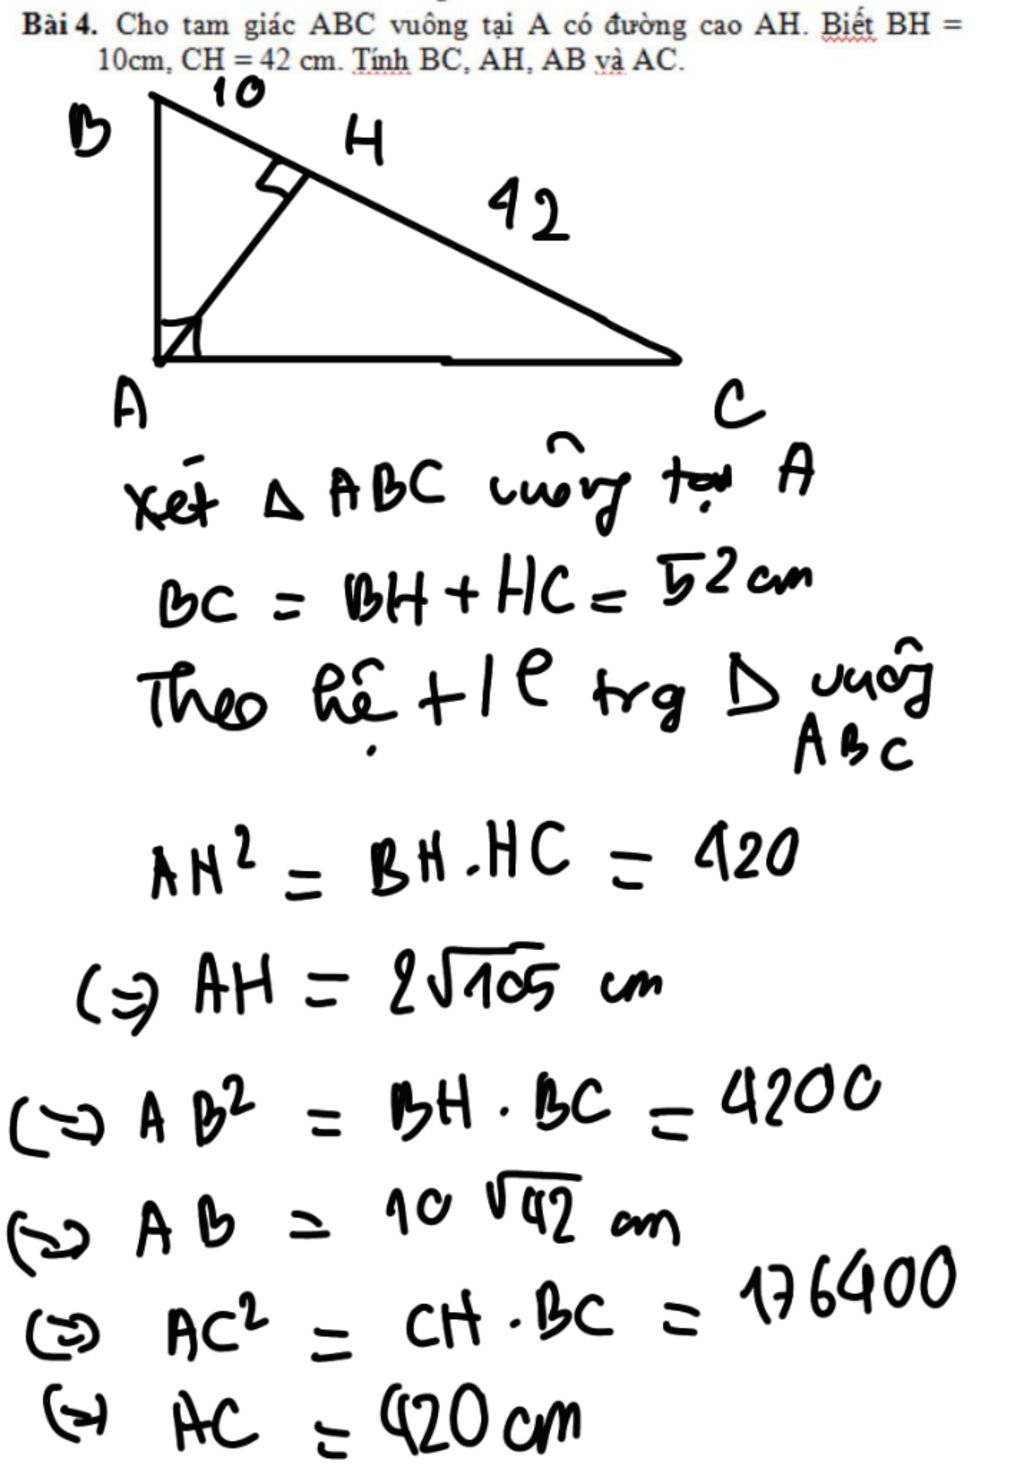 Bài 4. Cho tam giác ABC vuông tại A có đường cao AH. Biết BH =
10cm, CH = 42 cm. Tính BC, AH, AB và AC.
10
B
H
42
A
C
Xét Δ ABC vuông tại A
BC = BH + HC = 52 cm
Theo hệ t l e trg Δ vuông
ABC
AH² = BH . HC = 420
(=) AH = 2√105 cm
(=) AB² = BH . BC = 4200
(=) AB = 10 √42 cm
(=) AC² = CH . BC = 176400
(=) AC = 420 cm